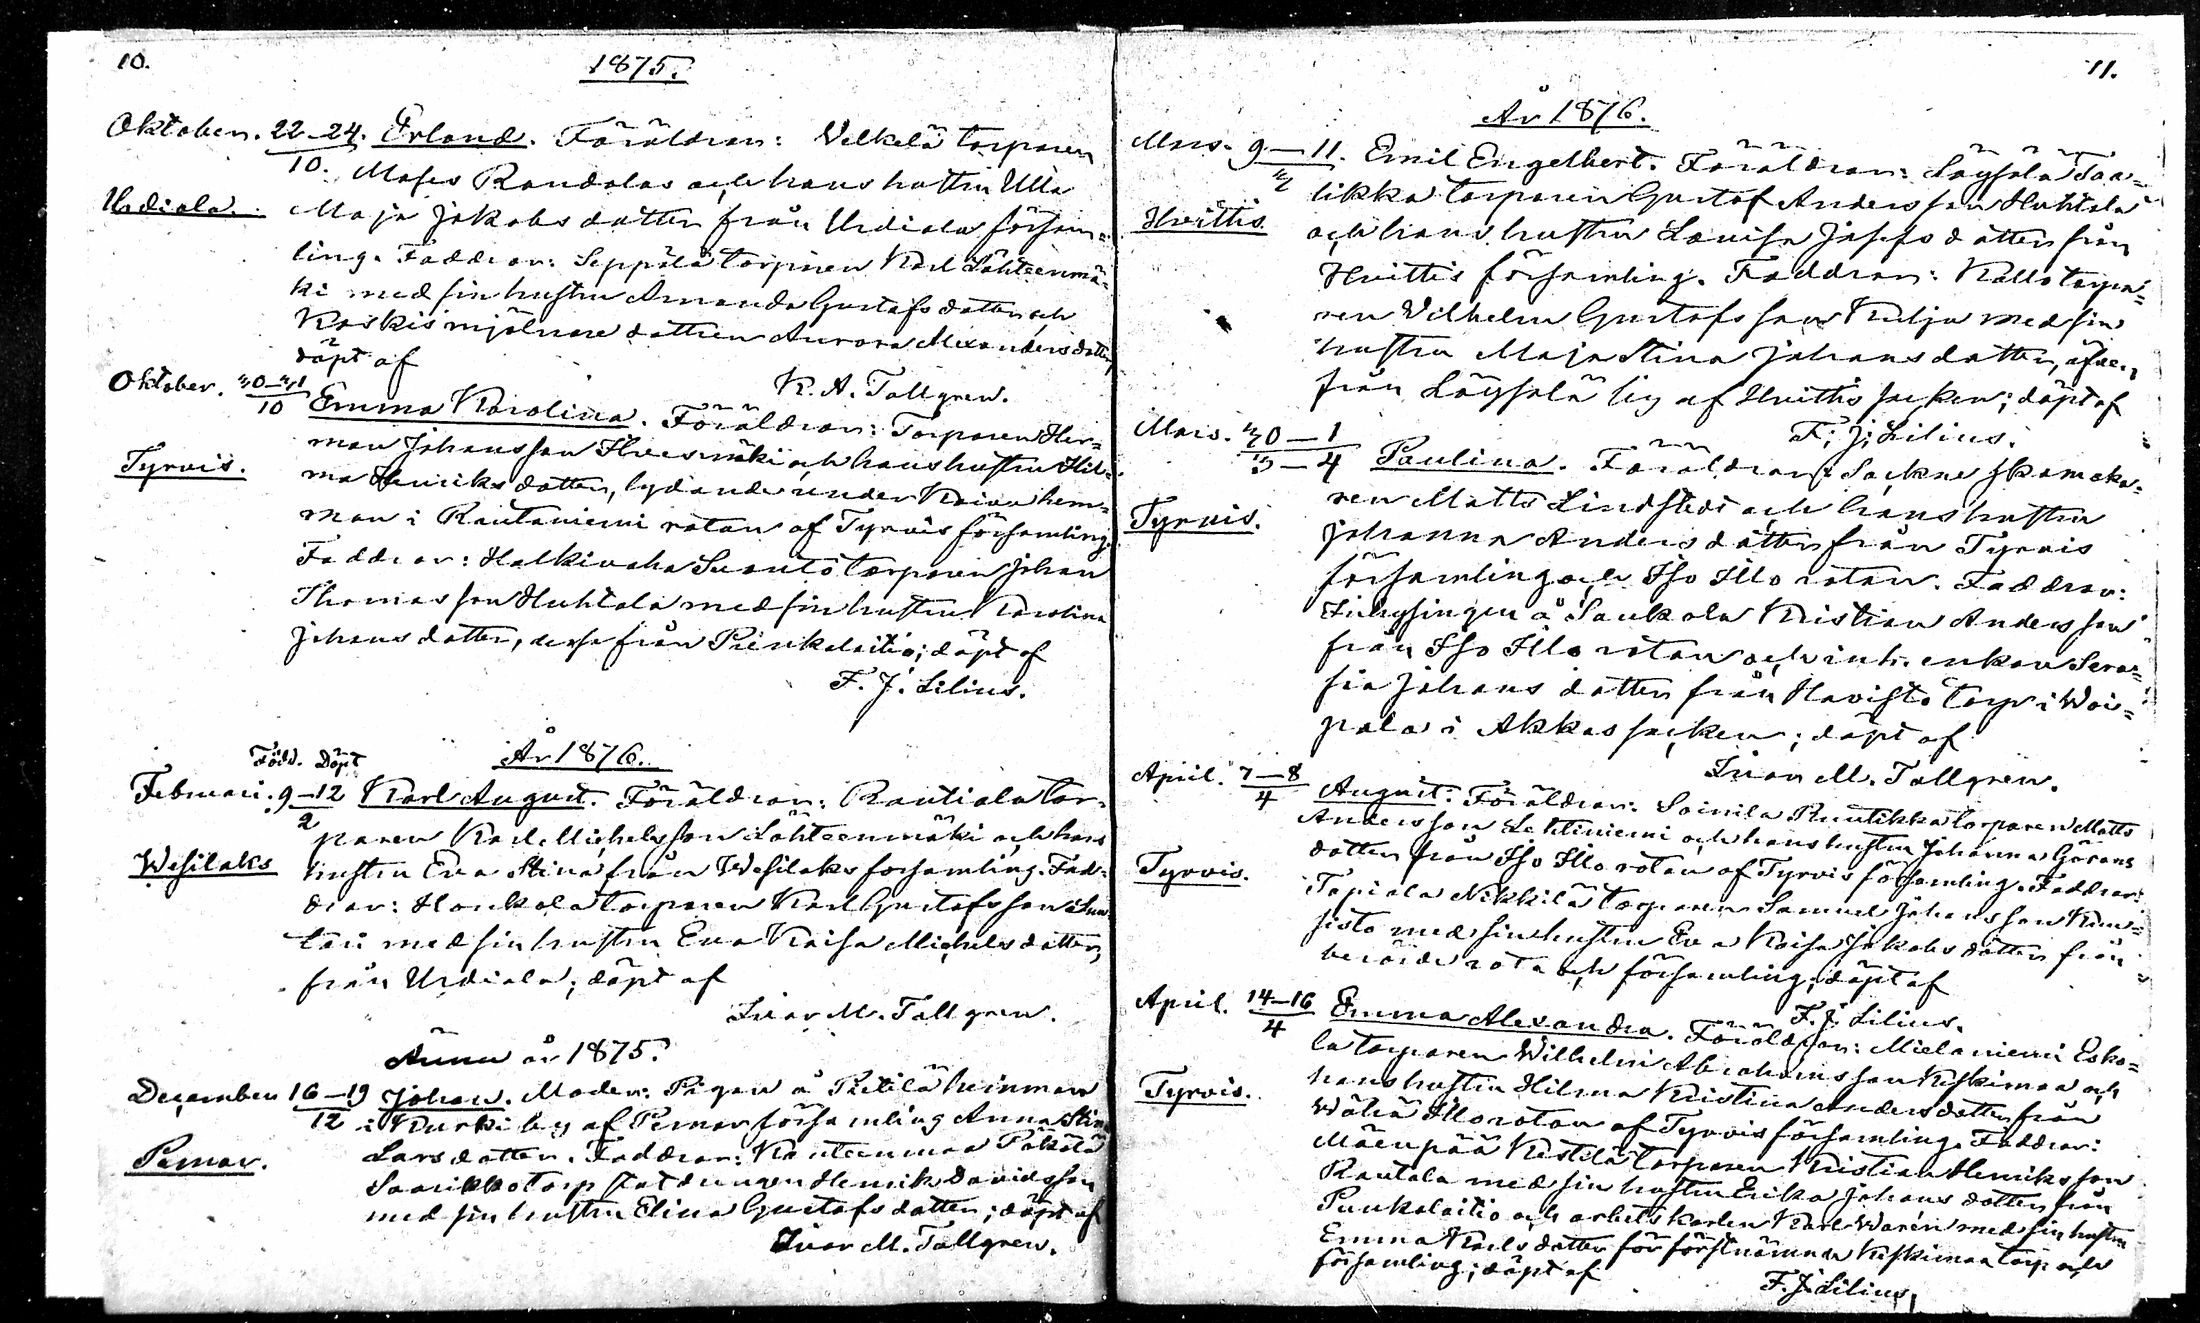 10.
1875.
Oktober. 22–24. Erland. Föräldrar: Velkelä torparen
10. Moses Randolas och hans hustru Ulla
Urdiala. Maja Jakobsdotter från Urdiala försam=
ling. Faddrar: Seppälä torparen Karl Lähteenmä=
ki med sin hustru Amanda Gustafsdotter och
Koskis mjölnare dottren Aurora Alexandersdotter,
döpt af
K. A. Tallgren.
Oktober. 30–31
10 Emma Karolina. Föräldrar: Torparen Her=
man Johansson Ilvesmäki och hans hustru Hil=
Tyrvis. ma Henriksdotter, lydande under Kaiva hem=
man i Rautaniemi rotan af Tyrvis församling.
Faddrar: Halkivaha Suonto torparen Johan
Thomasson Huhtala med sin hustru Karolina
Johansdotter, dessa från Punkalaitio; döpt af
F. J. Lilius.
Född. Döpt
År 1876.
Februari. 9–12 Karl August. Föräldrar: Rautiala tor=
2 paren Karl Michelsson Lähteenmäki och hans
Wesilaks hustru Eva Stina från Wesilaks församling. Fad=
drar: Honkola torparen Karl Gustafsson
med sin hustru Eva Kaisa Michelsdotter,
från Urdiala; döpt af
Ivar M. Tallgren.
Ännu år 1875.
December 16–19 Johan. Moder: Pigan å Pietilä heinman
12 i Kurki by af Pemar församling Anna Stina
Pemar. Larsdotter. Faddrar: Kanteenmaa Päkölä
Saarikko torp Henrik Davidsson
med sin hustru Elina Gustafsdotter; döpt af
Ivar M. Tallgren.
11.
År 1876.
Mars. 9–11. Emil Engelbert. Föräldrar: Löysälä Taa=
3 likka torparen Gustaf Andersson Huhtala
Hvittis och hans hustru Lovisa Josefsdotter från
Hvittis församling. Faddrar: Kallo torpa=
ren Vilhelm Gustafsson Kulju med sin
hustru Maja Stina Johansdotter, äfven
från Löysälä by af Hvittis socken; döpt af
F. J. Lilius.
Mars. 30–1
3–4 Paulina. Föräldrar: Sockne skomaka=
ren Matts Lindstedt och hans hustru
Tyrvis. Johanna Andersdotter från Tyrvis
församling och Iso Illo rotan. Faddrar:
Inhysingen å Saukola Kristian Andersson
från Iso Illo rotan och inh. enkan Sera=
fia Johansdotter från Havisto torp i Woi=
pala i Akkas socken; döpt af
Ivar M. Tallgren.
April. 7–8
4 August. Föräldrar: Soinila Ruutikka torparen Matts
Andersson Lehtiniemi och hans hustru Johanna Görans
Tyrvis. dotter från Iso Illo rotan af Tyrvis församling. Faddrar:
Tapiola Nikkilä torparen Samuel Johansson Kuu=
sisto med sin hustru Eva Kaisa Jakobsdotter från
berörde rota och församling; döpt af
F. J. Lilius.
April. 14–16
4 Emma Alexandra. Föräldrar: Mielaniemi Esko=
la torparen Wilhelm Abrahamsson Keskimaa och
Tyrvis. hans hustru Hilma Kristina Andersdotter från
Wähä Illo rotan af Tyrvis församling. Faddrar:
Mäenpää Kestilä torparen Kristian Henriksson
Rautala med sin hustru Erika Johansdotter från
Punkalaitio och arbetskarlen Karl Warén med sin hustru
Emma Karlsdotter för förstnämnda Keskimaa torp och
församling; döpt af
F. J. Lilius.